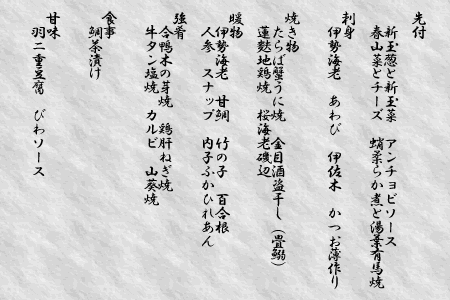 先付
新玉葱と新玉菜 アンチョビソース
春山菜とチーズ 蛸柔らか煮と湯葉有馬焼
刺身
伊勢海老 あわび 伊佐木 かつお薄作り
焼き物
たらば蟹うに焼 金目酒盗干し (畳鰯)
蓮麩地鶏焼 桜海老磯辺
暖物
伊勢海老 甘鯛 竹の子 百合根
人参 スナップ 内子ふかひれあん
強肴
合鴨木の芽焼 鶏肝ねぎ焼
牛タン塩焼 カルビ 山葵焼
食事
鯛茶漬け
甘味
羽二重豆腐 びわソース